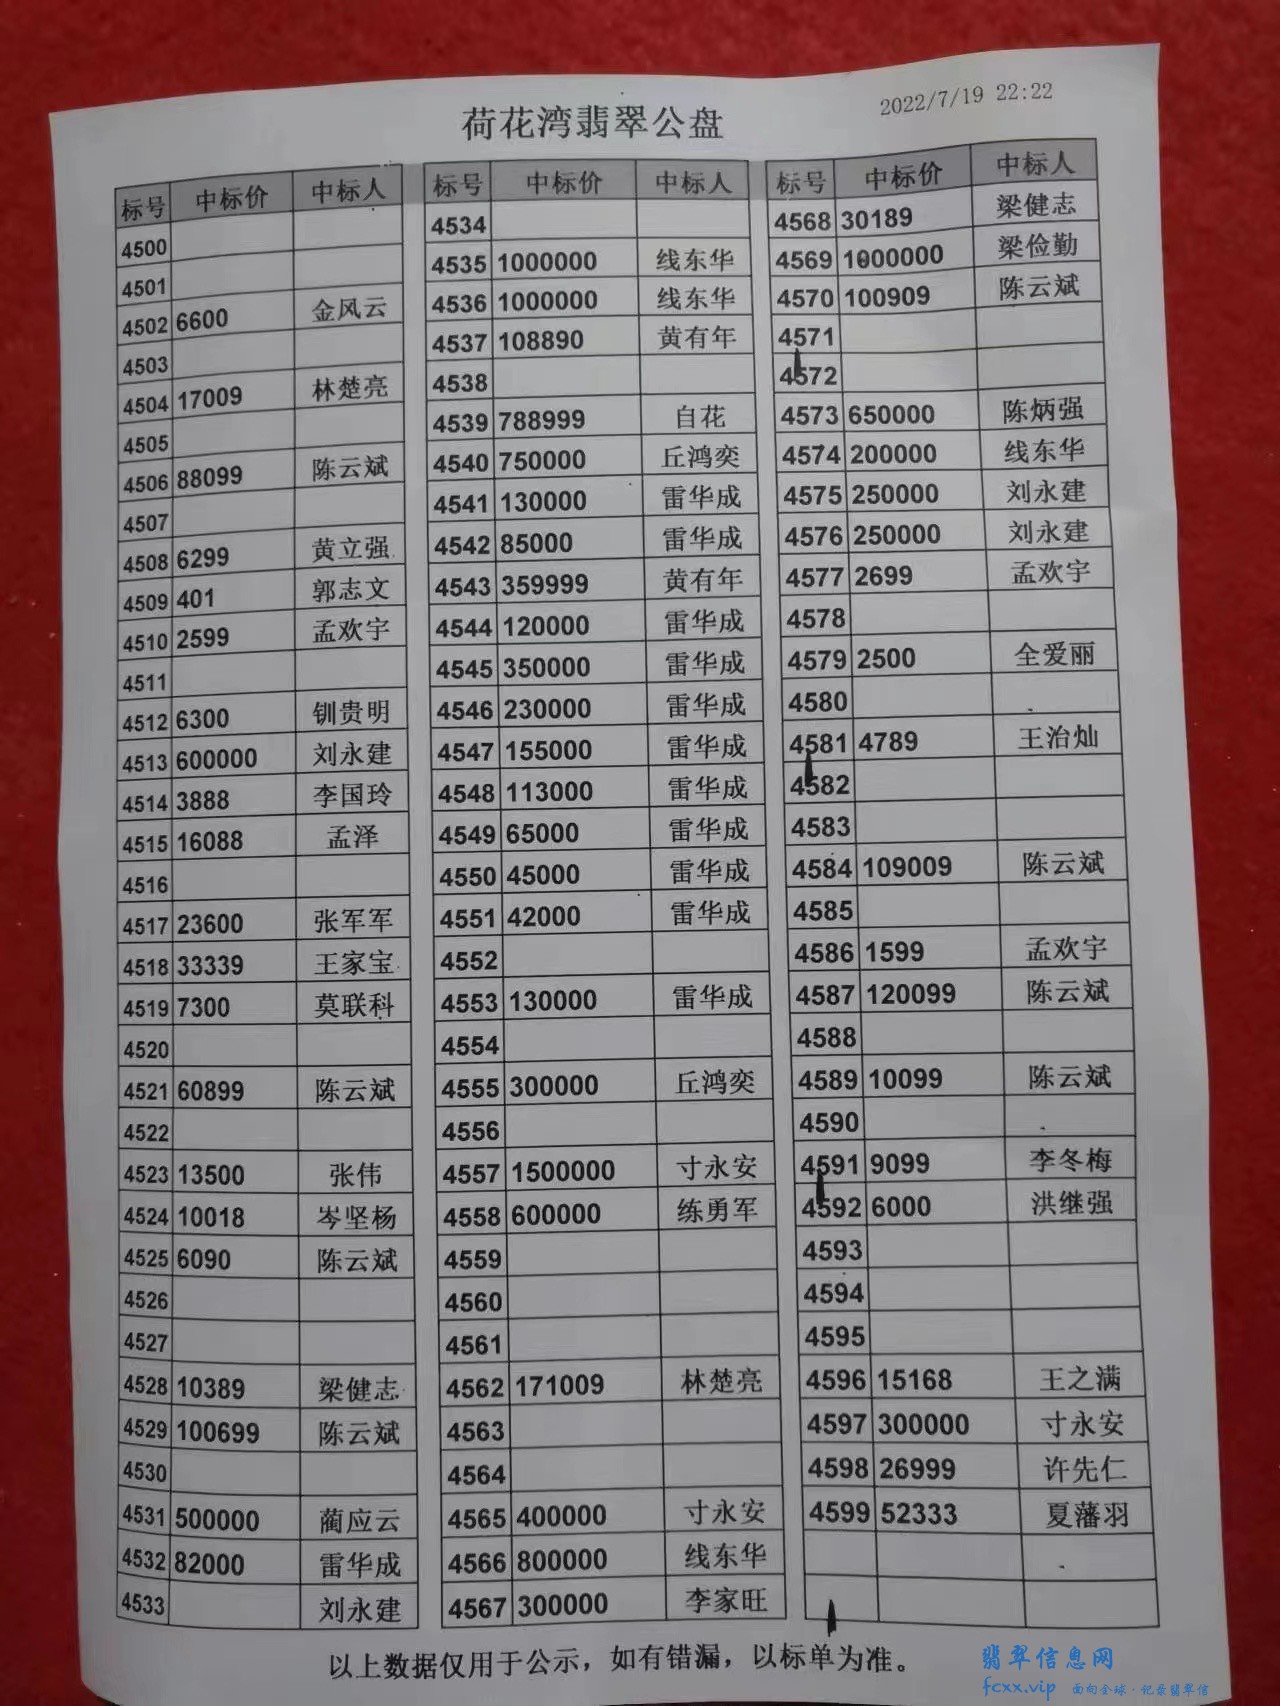 荷花湾翡翠公盘
2022/7/19 22:22
标号 中标价 中标人
4500
4501
4502 6600 金风云
4503
4504 17009 林楚亮
4505
4506 88099 陈云斌
4507
4508 6299 黄立强
4509 401 郭志文
4510 2599 孟欢宇
4511
4512 6300 钏贵明
4513 600000 刘永建
4514 3888 李国玲
4515 16088 孟泽
4516
4517 23600 张军军
4518 33339 王家宝
4519 7300 莫联科
4520
4521 60899 陈云斌
4522
4523 13500 张伟
4524 10018 岑坚杨
4525 6090 陈云斌
4526
4527
4528 10389 梁健志
4529 100699 陈云斌
4530
4531 500000 蔺应云
4532 82000 雷华成
4533 刘永建
标号 中标价 中标人
4534
4535 1000000 线东华
4536 1000000 线东华
4537 108890 黄有年
4538
4539 788999 自花
4540 750000 丘鸿奕
4541 130000 雷华成
4542 85000 雷华成
4543 359999 黄有年
4544 120000 雷华成
4545 350000 雷华成
4546 230000 雷华成
4547 155000 雷华成
4548 113000 雷华成
4549 65000 雷华成
4550 45000 雷华成
4551 42000 雷华成
4552
4553 130000 雷华成
4554
4555 300000 丘鸿奕
4556
4557 1500000 寸永安
4558 600000 练勇军
4559
4560
4561
4562 171009 林楚亮
4563
4564
4565 400000 寸永安
4566 800000 线东华
4567 300000 李家旺
标号 中标价 中标人
4568 30189 梁健志
4569 1000000 梁俭勤
4570 100909 陈云斌
4571
4572
4573 650000 陈炳强
4574 200000 线东华
4575 250000 刘永建
4576 250000 刘永建
4577 2699 孟欢宇
4578
4579 2500 全爱丽
4580
4581 4789 王治灿
4582
4583
4584 109009 陈云斌
4585
4586 1599 孟欢宇
4587 120099 陈云斌
4588
4589 10099 陈云斌
4590
4591 9099 李冬梅
4592 6000 洪继强
4593
4594
4595
4596 15168 王之满
4597 300000 寸永安
4598 26999 许先仁
4599 52333 夏藩羽
以上数据仅用于公示，如有错漏，以标单为准。
翡翠信息网
fcxx.vip 面向全球·记录翡翠信